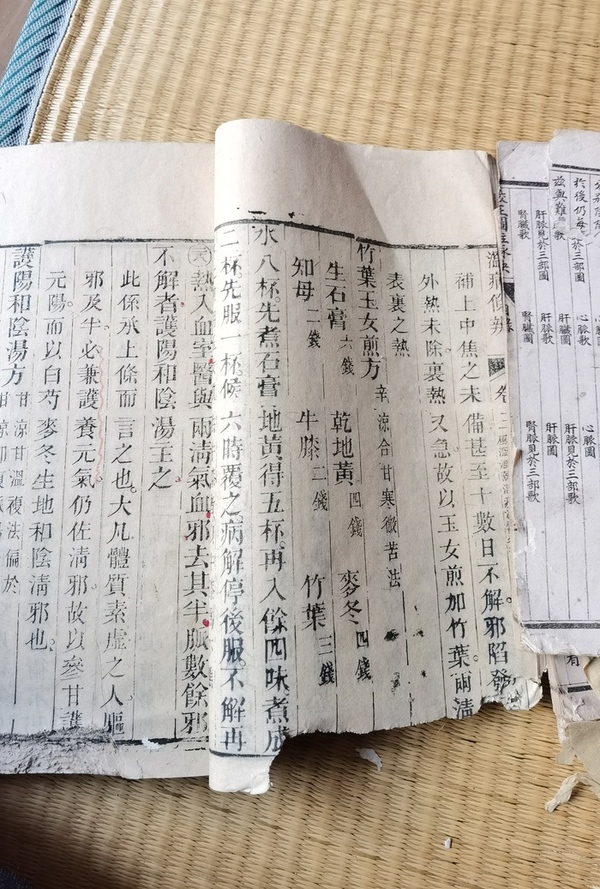 補上中焦之未備甚至十數日不解邪陷發
外熱未除裏熱又急故以玉女煎加竹葉兩清
表裏之熱
竹葉玉女煎方 辛涼合甘寒微苦法
生石膏 六錢 乾地黃 四錢 麥冬 四錢
知母 二錢 牛膝 二錢 竹葉 三錢
水八杯先煮石膏地黃得五杯再入餘四味煮成
二杯先服一杯候六時覆之病解停後服不解再
熱入血室醫與兩清氣血邪去其半脈數餘邪
不解者護陽和陰湯主之
此係承上條而言之也大凡體質素虛之人驅
邪及半必兼護養元氣仍佐清邪故以參甘護
元陽而以白芍麥冬生地和陰清邪也
護陽和陰湯方 甘涼甘溫複法偏於
肝脈見於三部圖
腎臟歌
肝脈歌
肝臟圖
腎脈圖
心脈圖
心脈歌
肝脈圖
肝臟歌
肝脈見於三部歌
腎臟圖
腎脈見於三部歌